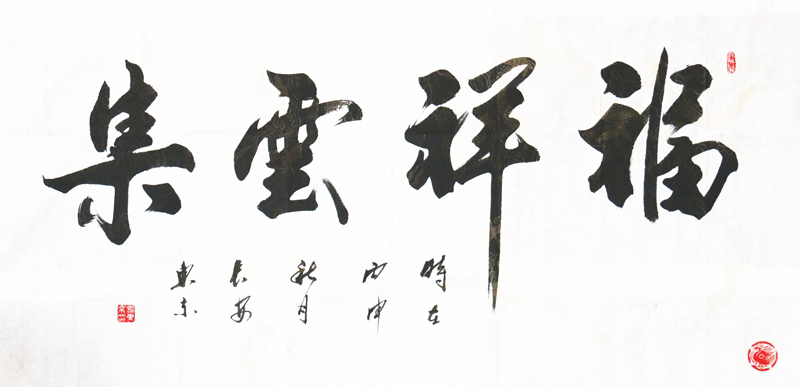 福祥雲集
時在
丙申
秋月
長安
東